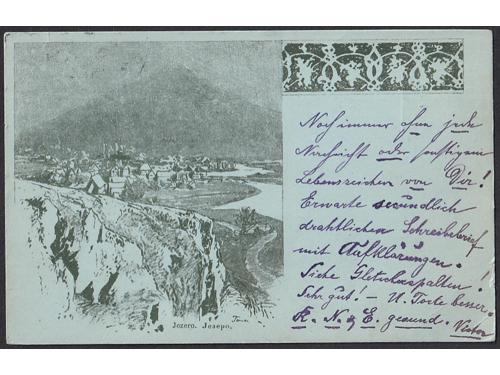 Noch immer ohne jede
Nachricht oder sonstigem
Lebenszeichen von Dir!
Erwarte secündlich
drahtlichen Schreibebrief
mit Aufklärungen.
Siehe Gletscherspalten!
Sehr gut! – U. Torte besser.
K. N. & E. gesund. Victor
Jezero. Језеро.